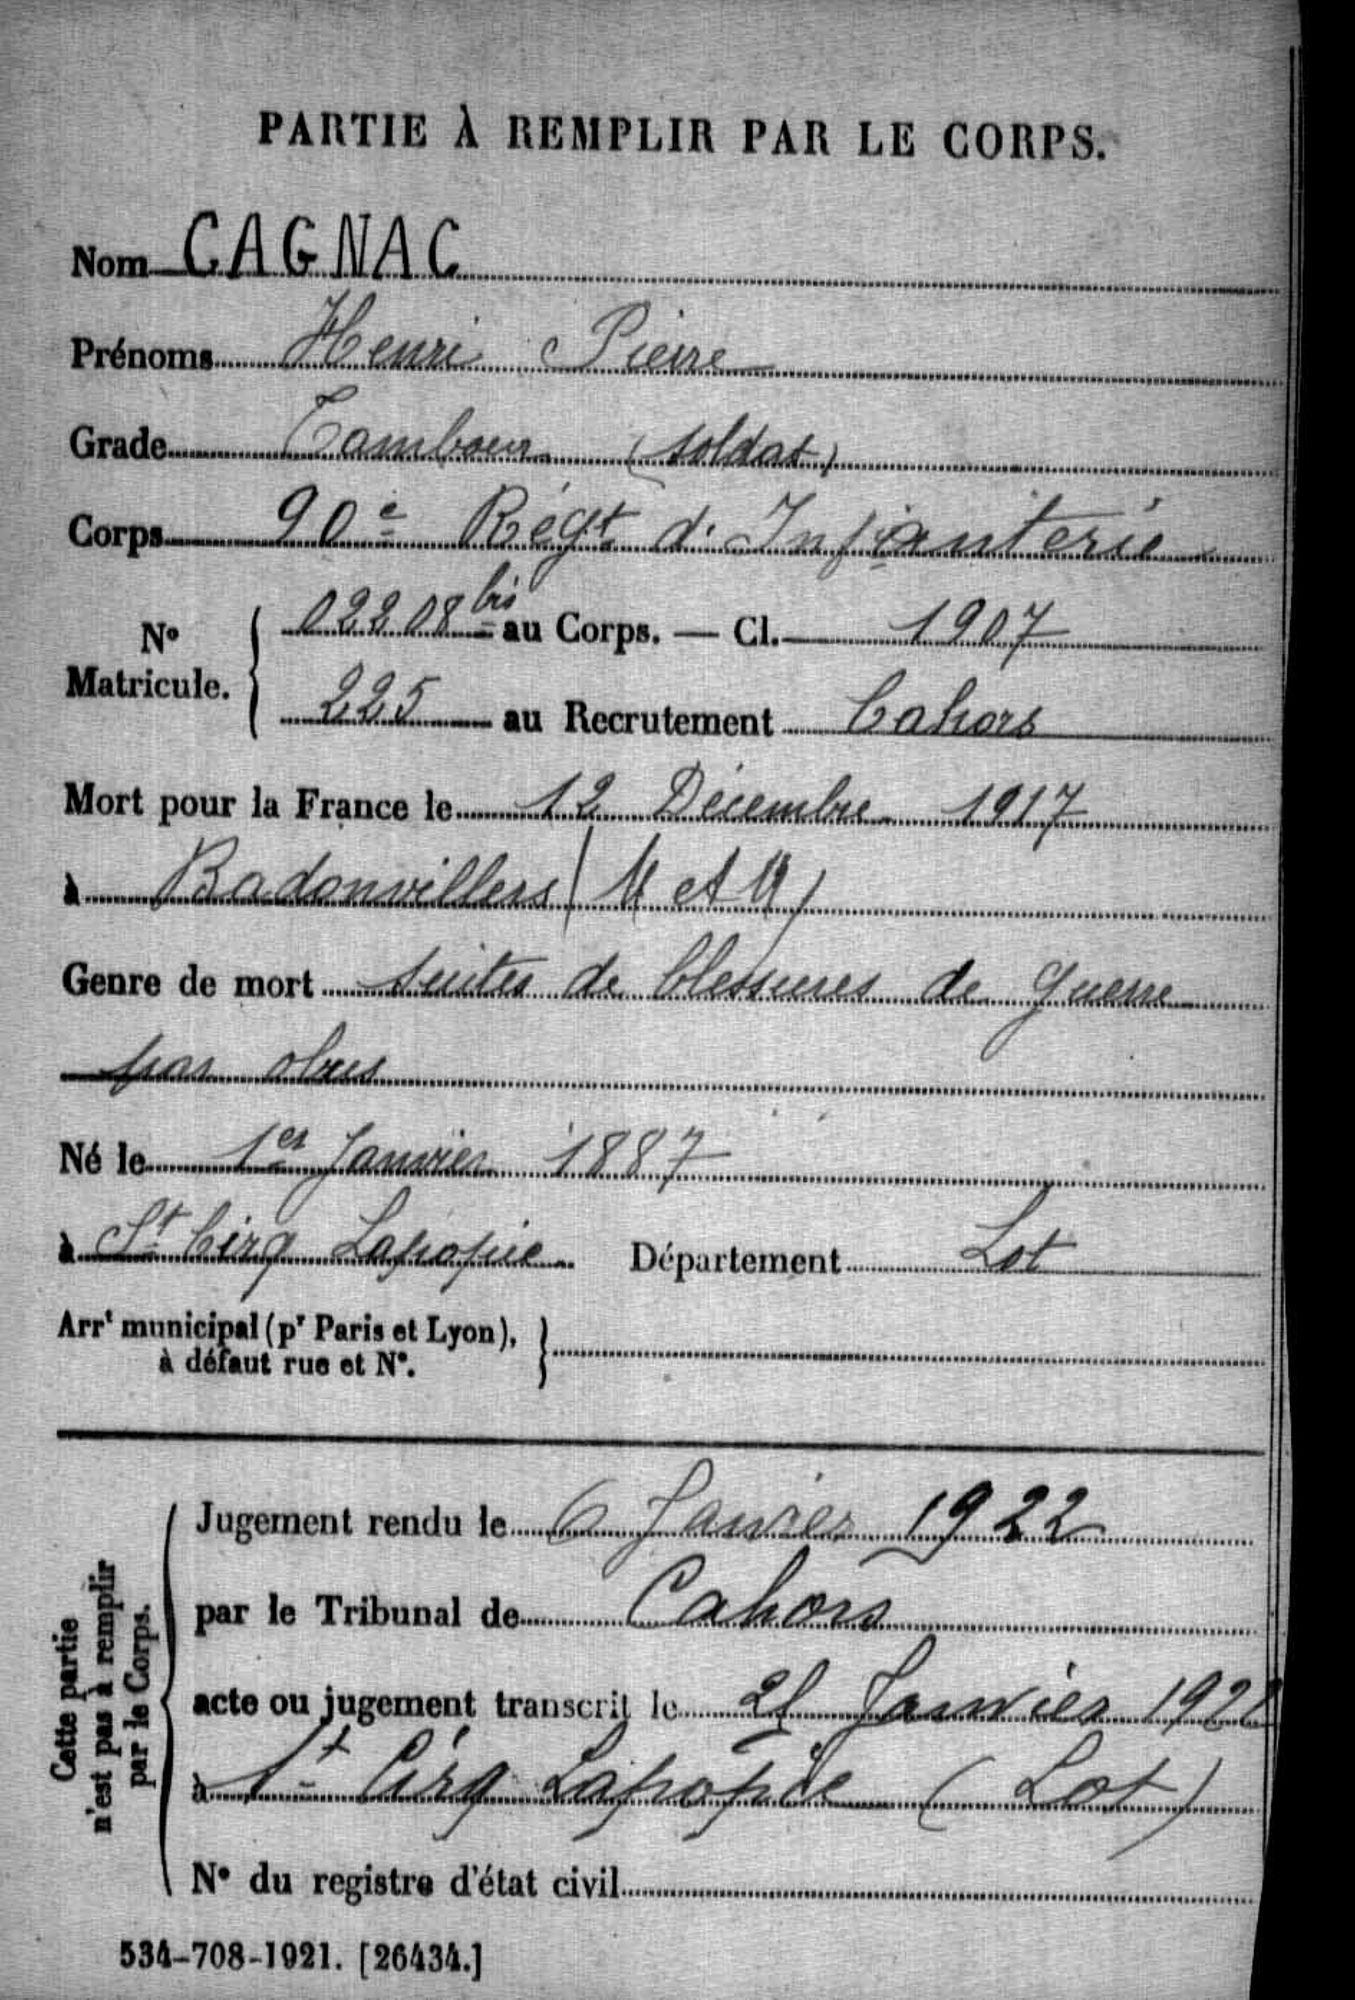 PARTIE À REMPLIR PAR LE CORPS.
Nom CAGNAC
Prénoms Henri Pierre
Grade Tambour (soldat)
Corps 90e Régt d'Infanterie
No Matricule. 02208 bis au Corps. — Cl. 1907
225 au Recrutement Cahors
Mort pour la France le 12 Décembre 1917
à Badonvillers (M et M)
Genre de mort suites de blessures de guerre
par obus
Né le 1er Janvier 1887
à St Cirq Lapopie Département Lot
Arrt municipal (pr Paris et Lyon),
à défaut rue et No.
Cette partie
n'est pas à remplir
par le Corps.
Jugement rendu le 6 Janvier 1922
par le Tribunal de Cahors
acte ou jugement transcrit le Janvier 1922
à St Cirq Lapopie (Lot)
No du registre d'état civil
534-708-1921. [26434.]